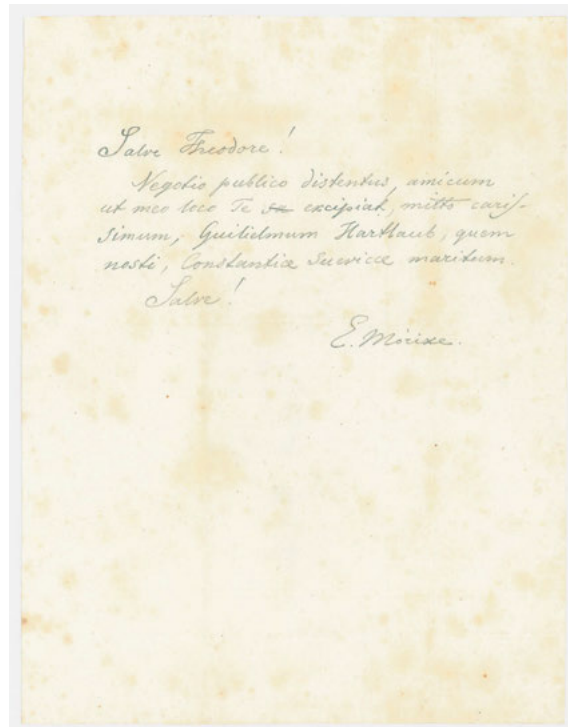 Salve Theodore!
Negotio publico distentus, amicum
ut meo loco Te excipiat, mitto caris-
simum, Guilielmum Hartlaub, quem
nosti, Constantiæ Suevicæ maritum.
Salve!
E. Mörike.